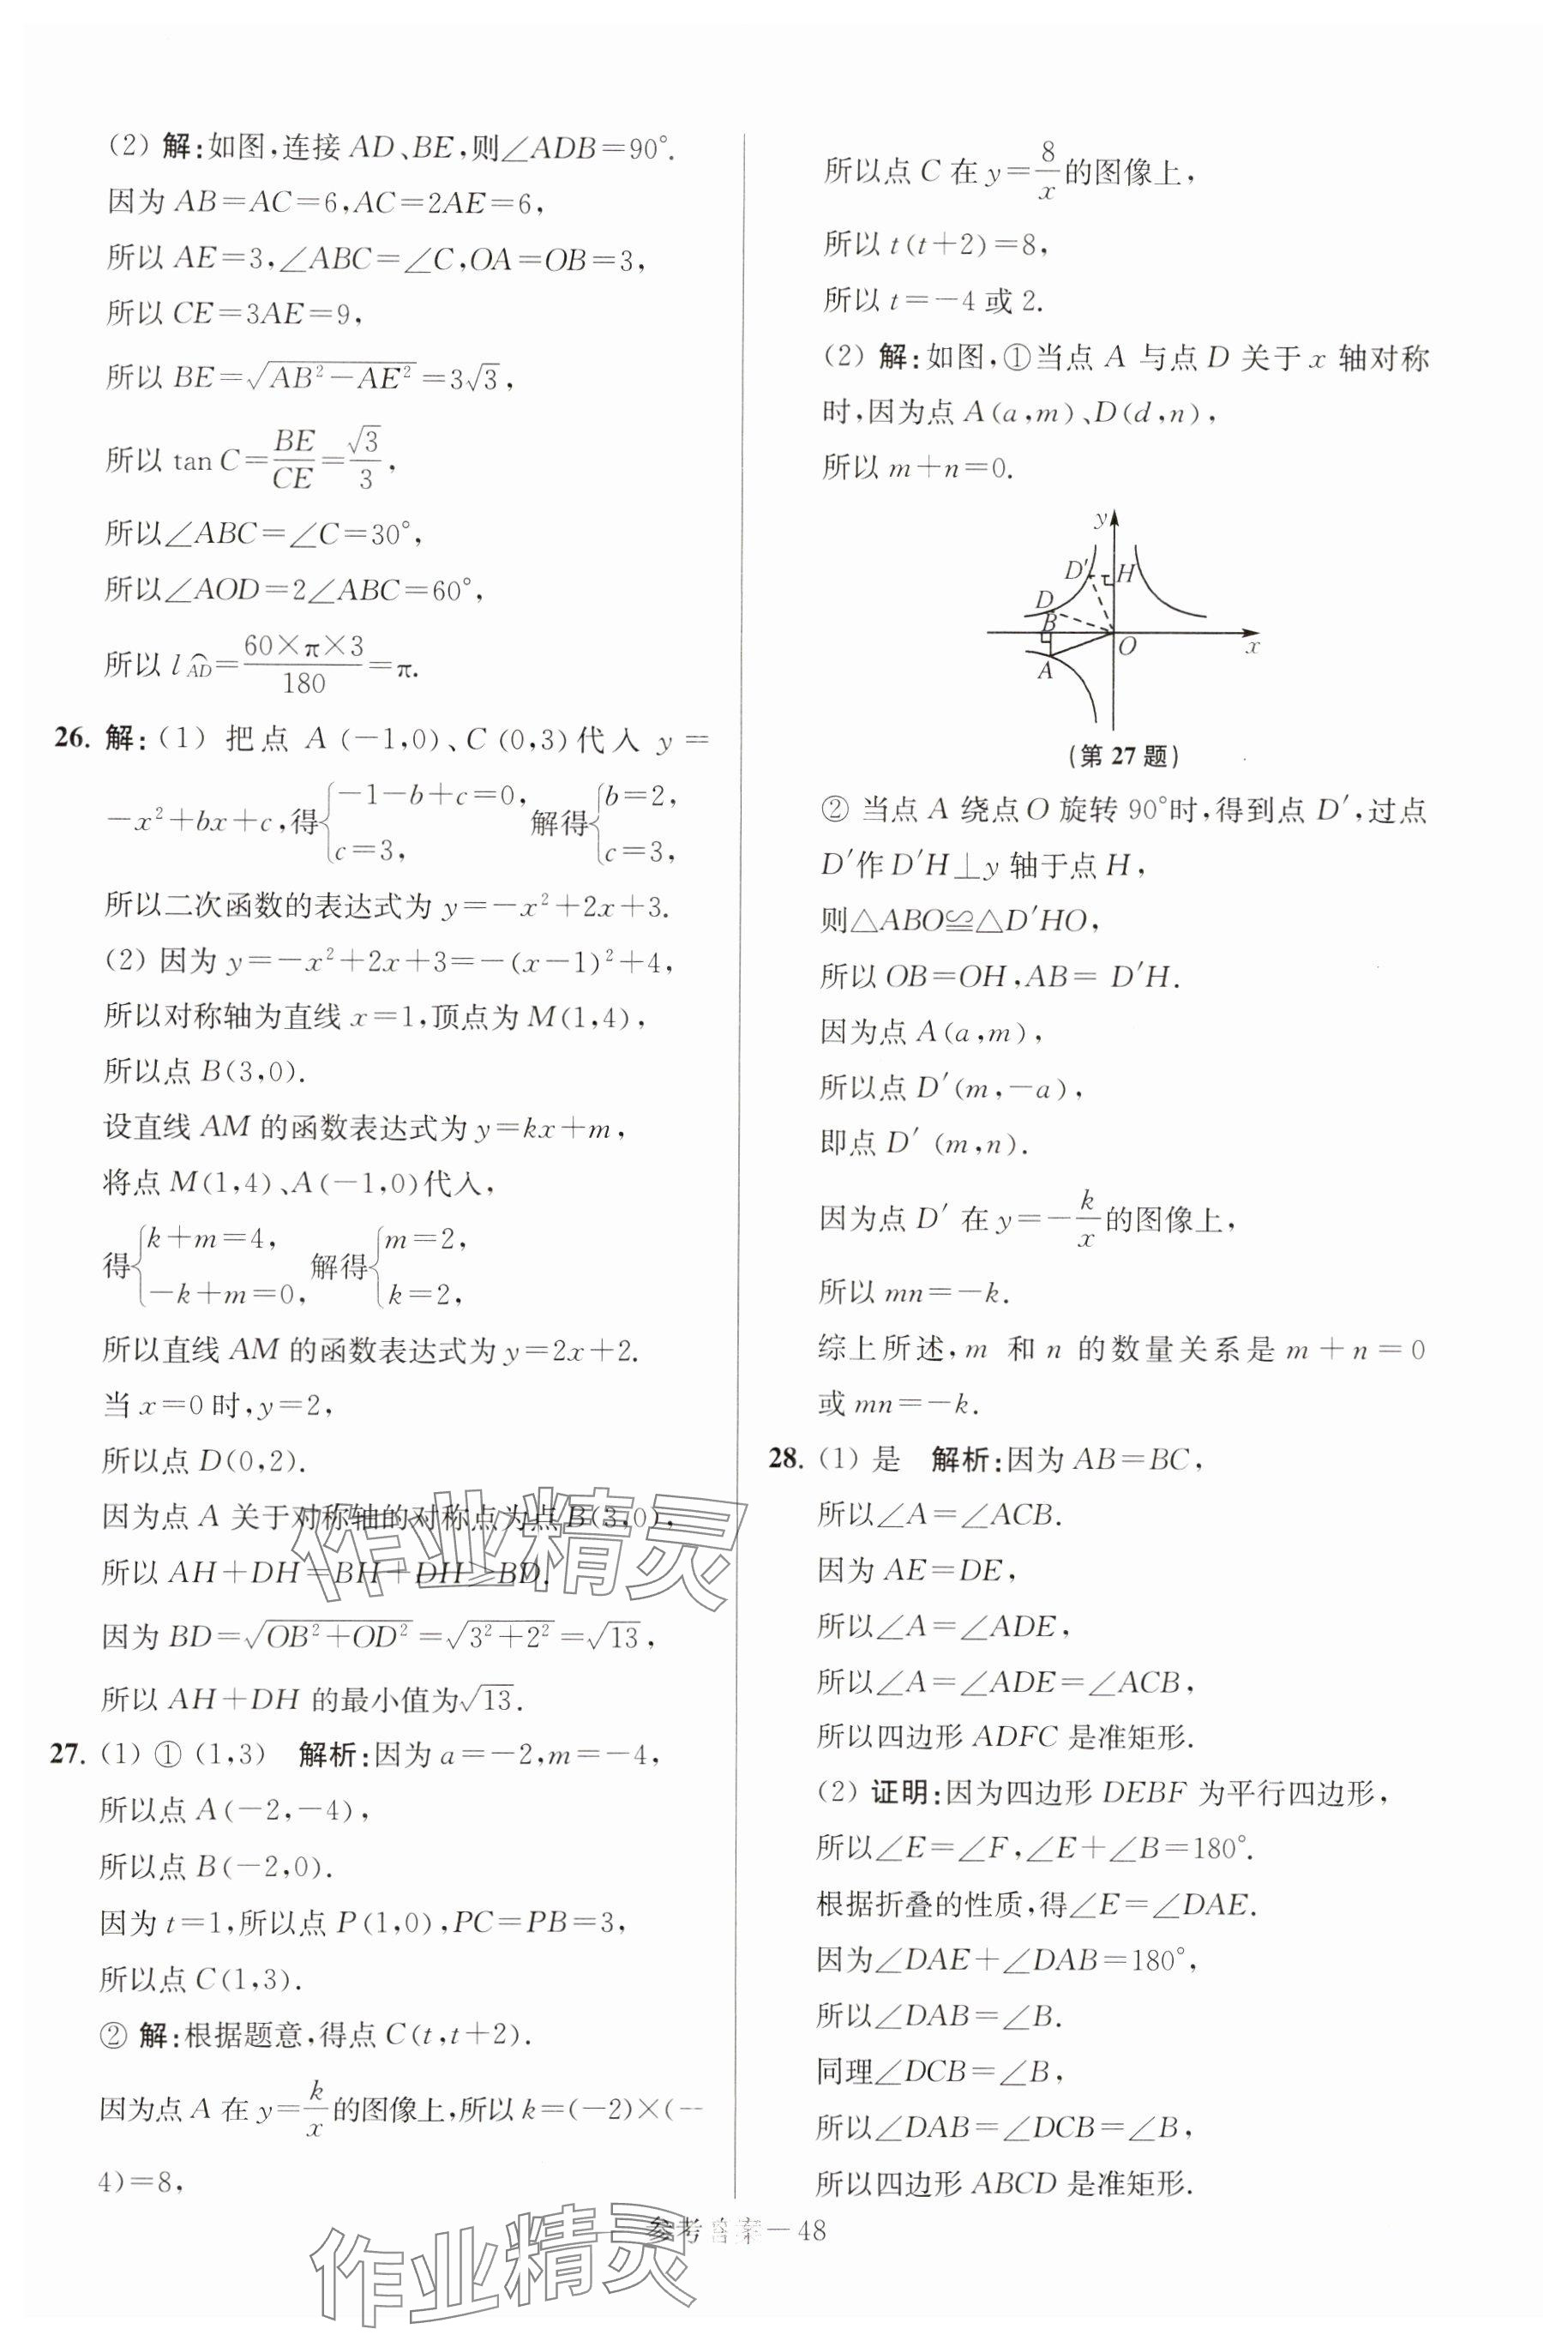 (2) 解:如图,连接 AD、BE,则∠ADB=90°.
因为 AB=AC=6,AC=2AE=6,
所以 AE=3,∠ABC=∠C,OA=OB=3,
所以 CE=3AE=9,
所以 BE=√(AB²-AE²)=3√3,
所以 tan C=BE/CE=√3/3,
所以∠ABC=∠C=30°,
所以∠AOD=2∠ABC=60°,
所以 l⌢AD=60×π×3/180=π.
26. 解:(1) 把点 A (-1,0)、C (0,3)代入 y =
-x²+bx+c,得{-1-b+c=0, c=3, 解得{b=2, c=3,
所以二次函数的表达式为 y=-x²+2x+3.
(2) 因为 y=-x²+2x+3=-(x-1)²+4,
所以对称轴为直线 x=1,顶点为 M(1,4),
所以点 B(3,0).
设直线 AM 的函数表达式为 y=kx+m,
将点 M(1,4)、A(-1,0)代入,
得{k+m=4, -k+m=0, 解得{m=2, k=2,
所以直线 AM 的函数表达式为 y=2x+2.
当 x=0 时,y=2,
所以点 D(0,2).
因为点 A 关于对称轴的对称点为点 B(3,0),
所以 AH+DH=BH+DH≥BD.
因为 BD=√(OB²+OD²)=√(3²+2²)=√13,
所以 AH+DH 的最小值为√13.
27. (1) ① (1,3) 解析:因为 a=-2,m=-4,
所以点 A(-2,-4),
所以点 B(-2,0).
因为 t=1,所以点 P(1,0),PC=PB=3,
所以点 C(1,3).
② 解:根据题意,得点 C(t,t+2).
因为点 A 在 y=k/x 的图像上,所以 k=(-2)×(-
4)=8,
所以点 C 在 y=8/x 的图像上,
所以 t(t+2)=8,
所以 t=-4 或 2.
(2) 解:如图,①当点 A 与点 D 关于 x 轴对称
时,因为点 A(a,m)、D(d,n),
所以 m+n=0.
y
D′ H
D
B
O x
A
(第 27 题)
② 当点 A 绕点 O 旋转 90°时,得到点 D′,过点
D′作 D′H⊥y 轴于点 H,
则△ABO≌△D′HO,
所以 OB=OH,AB= D′H.
因为点 A(a,m),
所以点 D′(m,-a),
即点 D′ (m,n).
因为点 D′ 在 y=-k/x 的图像上,
所以 mn=-k.
综上所述,m 和 n 的数量关系是 m+n=0
或 mn=-k.
28. (1) 是 解析:因为 AB=BC,
所以∠A=∠ACB.
因为 AE=DE,
所以∠A=∠ADE,
所以∠A=∠ADE=∠ACB,
所以四边形 ADFC 是准矩形.
(2) 证明:因为四边形 DEBF 为平行四边形,
所以∠E=∠F,∠E+∠B=180°.
根据折叠的性质,得∠E=∠DAE.
因为∠DAE+∠DAB=180°,
所以∠DAB=∠B.
同理∠DCB=∠B,
所以∠DAB=∠DCB=∠B,
所以四边形 ABCD 是准矩形.
参考答案—48
作业精灵
作业精灵